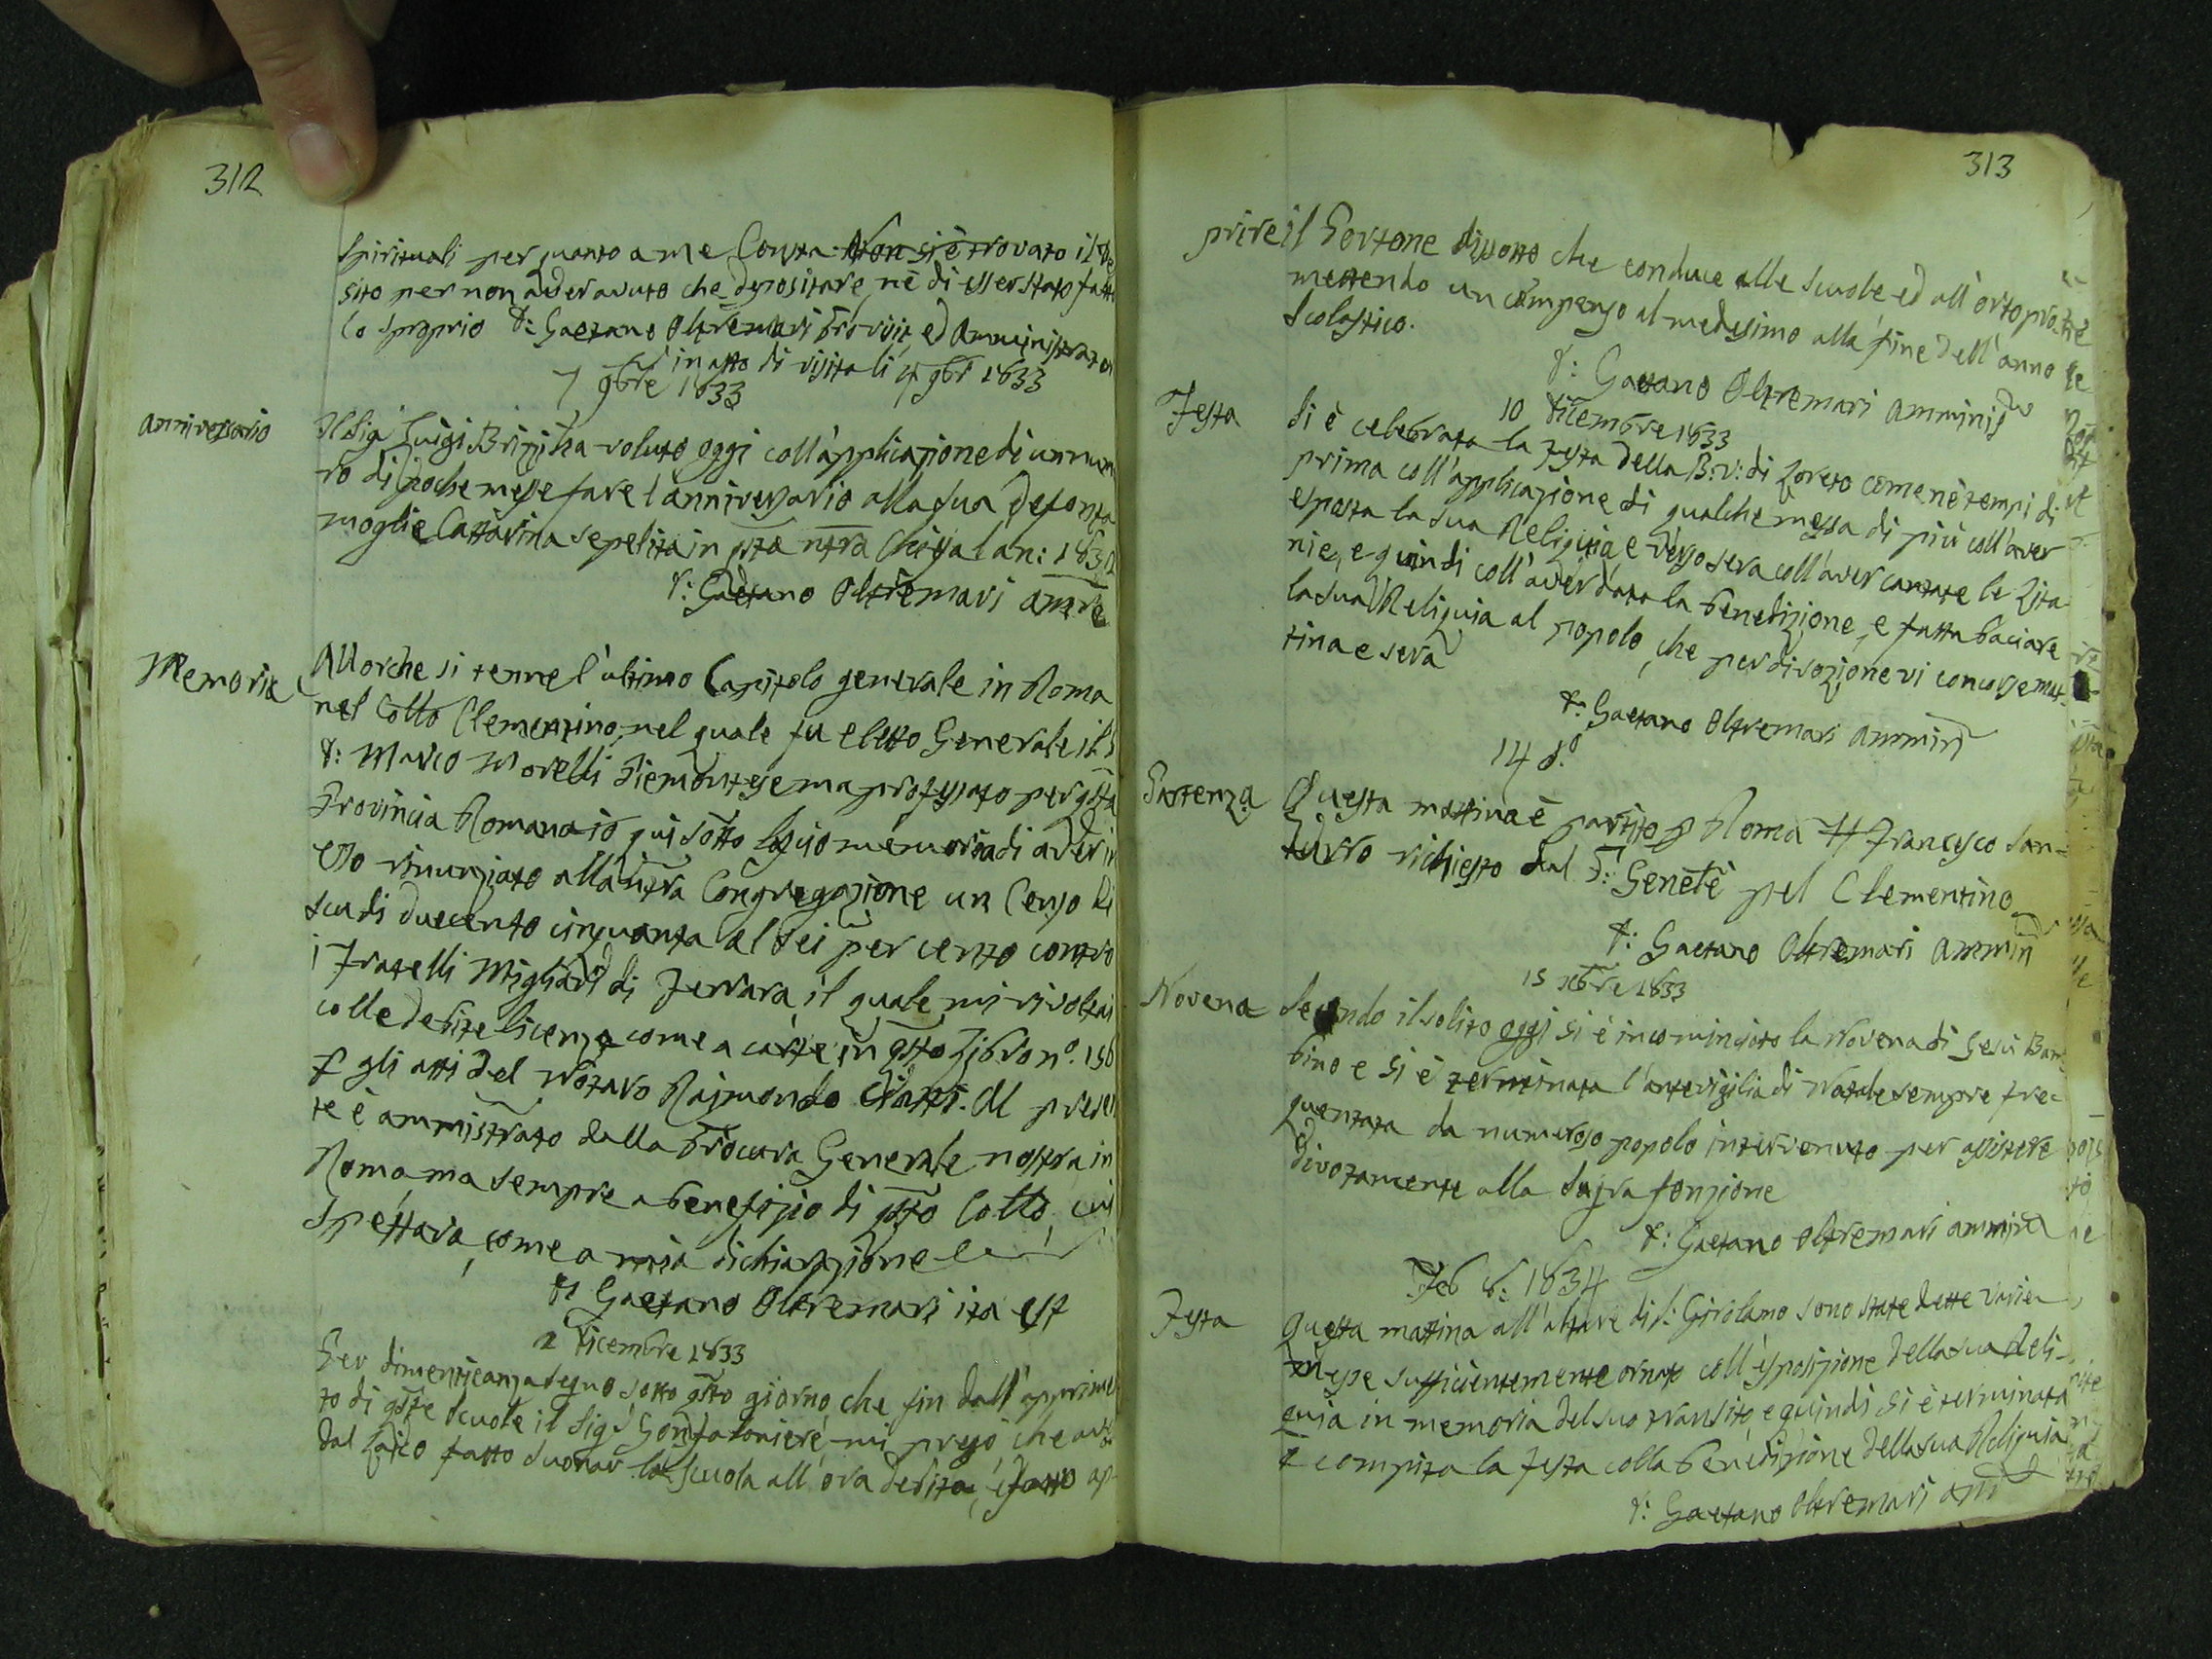 312
Spirituali per quanto a me Consta. Non si è trovato il De
sito per non aver avuto che depositare, nè di esser stato fatto
lo sproprio P: Gaetano Oltremari Provicie, ed Amministrator
in atto di visita li 4 9bre 1833
7 9bre 1833
anniversario
Il Sig. Luigi Brizzi ha voluto oggi coll'applicazione di un nume
ro di poche messe fare l'anniversario alla sua defonta
moglie Cattarina sepelita in qsta nṛa Chiesa l'an: 1832
P: Gaetano Oltremari amre
Memoria
Allorche si tenne l'ultimo Capitolo generale in Roma
nel Collo Clementino, nel quale fu eletto Generale il
P: Marco Morelli Piemontese ma professato per qsta
Provincia Romana io qui sotto lascio memoria di aver in
esso rinunziato alla nṛa Congregazione un Censo di
scudi duecento cinquanta al sei per cento contro
i Fratelli Migliari di Ferrara, il quale mi rivoltai
colle debite licenze come a carte in qsto Libro nº. 150
p gli atti del Notaro Raimondo Al presen
te è ammistrato dalla Procura Generale nostra in
Roma ma sempre a benefizio di qsto Collo, cui
spettara, come a mia dichiarazione
P Gaetano Oltremari ita est
2 Dicembre 1833
Per dimenticanza segno sotto qsto giorno, che fin dall'aprimen
to di qste Scuole il Sigr Gonfaloniere mi pregò che avrei
dal Laico fatto suonar la Scuola all'ora debita, e fatto ap-
313
prire il Portone di sotto che conduce alle Scuole ed all'orto pro-
mettendo un compenso al medesimo alla fine dell'anno
Scolastico.
P: Gaetano Oltremari Amminisr
10 Dicembre 1833
Festa
Si è celebrata la Festa della B: V: di Loreto come nè tempi di
prima coll'applicazione di qualche messa di più coll'aver
esposta la sua Reliquia e verso sera coll'aver cantate le Lita
nie, e quindi coll'aver data la benedizione, e fatta baciare
la sua Reliquia al popolo, che per divozione vi concorse mat-
tina e sera
P: Gaetano Oltremari Ammin
14 do
Partenza
Questa mattina è partito p Roma Fr Francesco San-
turro richiesto dal P: Genele pel Clementino
P: Gaetano Oltremari Ammin
15 Xbre 1833
Novena
Secondo il solito oggi si è incominciata la Novena di Gesù Bam
bino e si è terminata l'antevigilia di Natale sempre fre-
quentata da numeroso popolo intervenuto per assistere
divotamente alla sagra fonzione
P: Gaetano Oltremari ammin
Feb 8: 1834
Festa
Questa mattina all'altare di S: Girolamo sono state dette varie
messe sufficientemente ornato coll'esposizione della sua Reli-
quia in memoria del suo transito, e quindi si è terminata
e compita la Festa colla benedizione della sua Reliquia
P: Gaetano Oltremari am